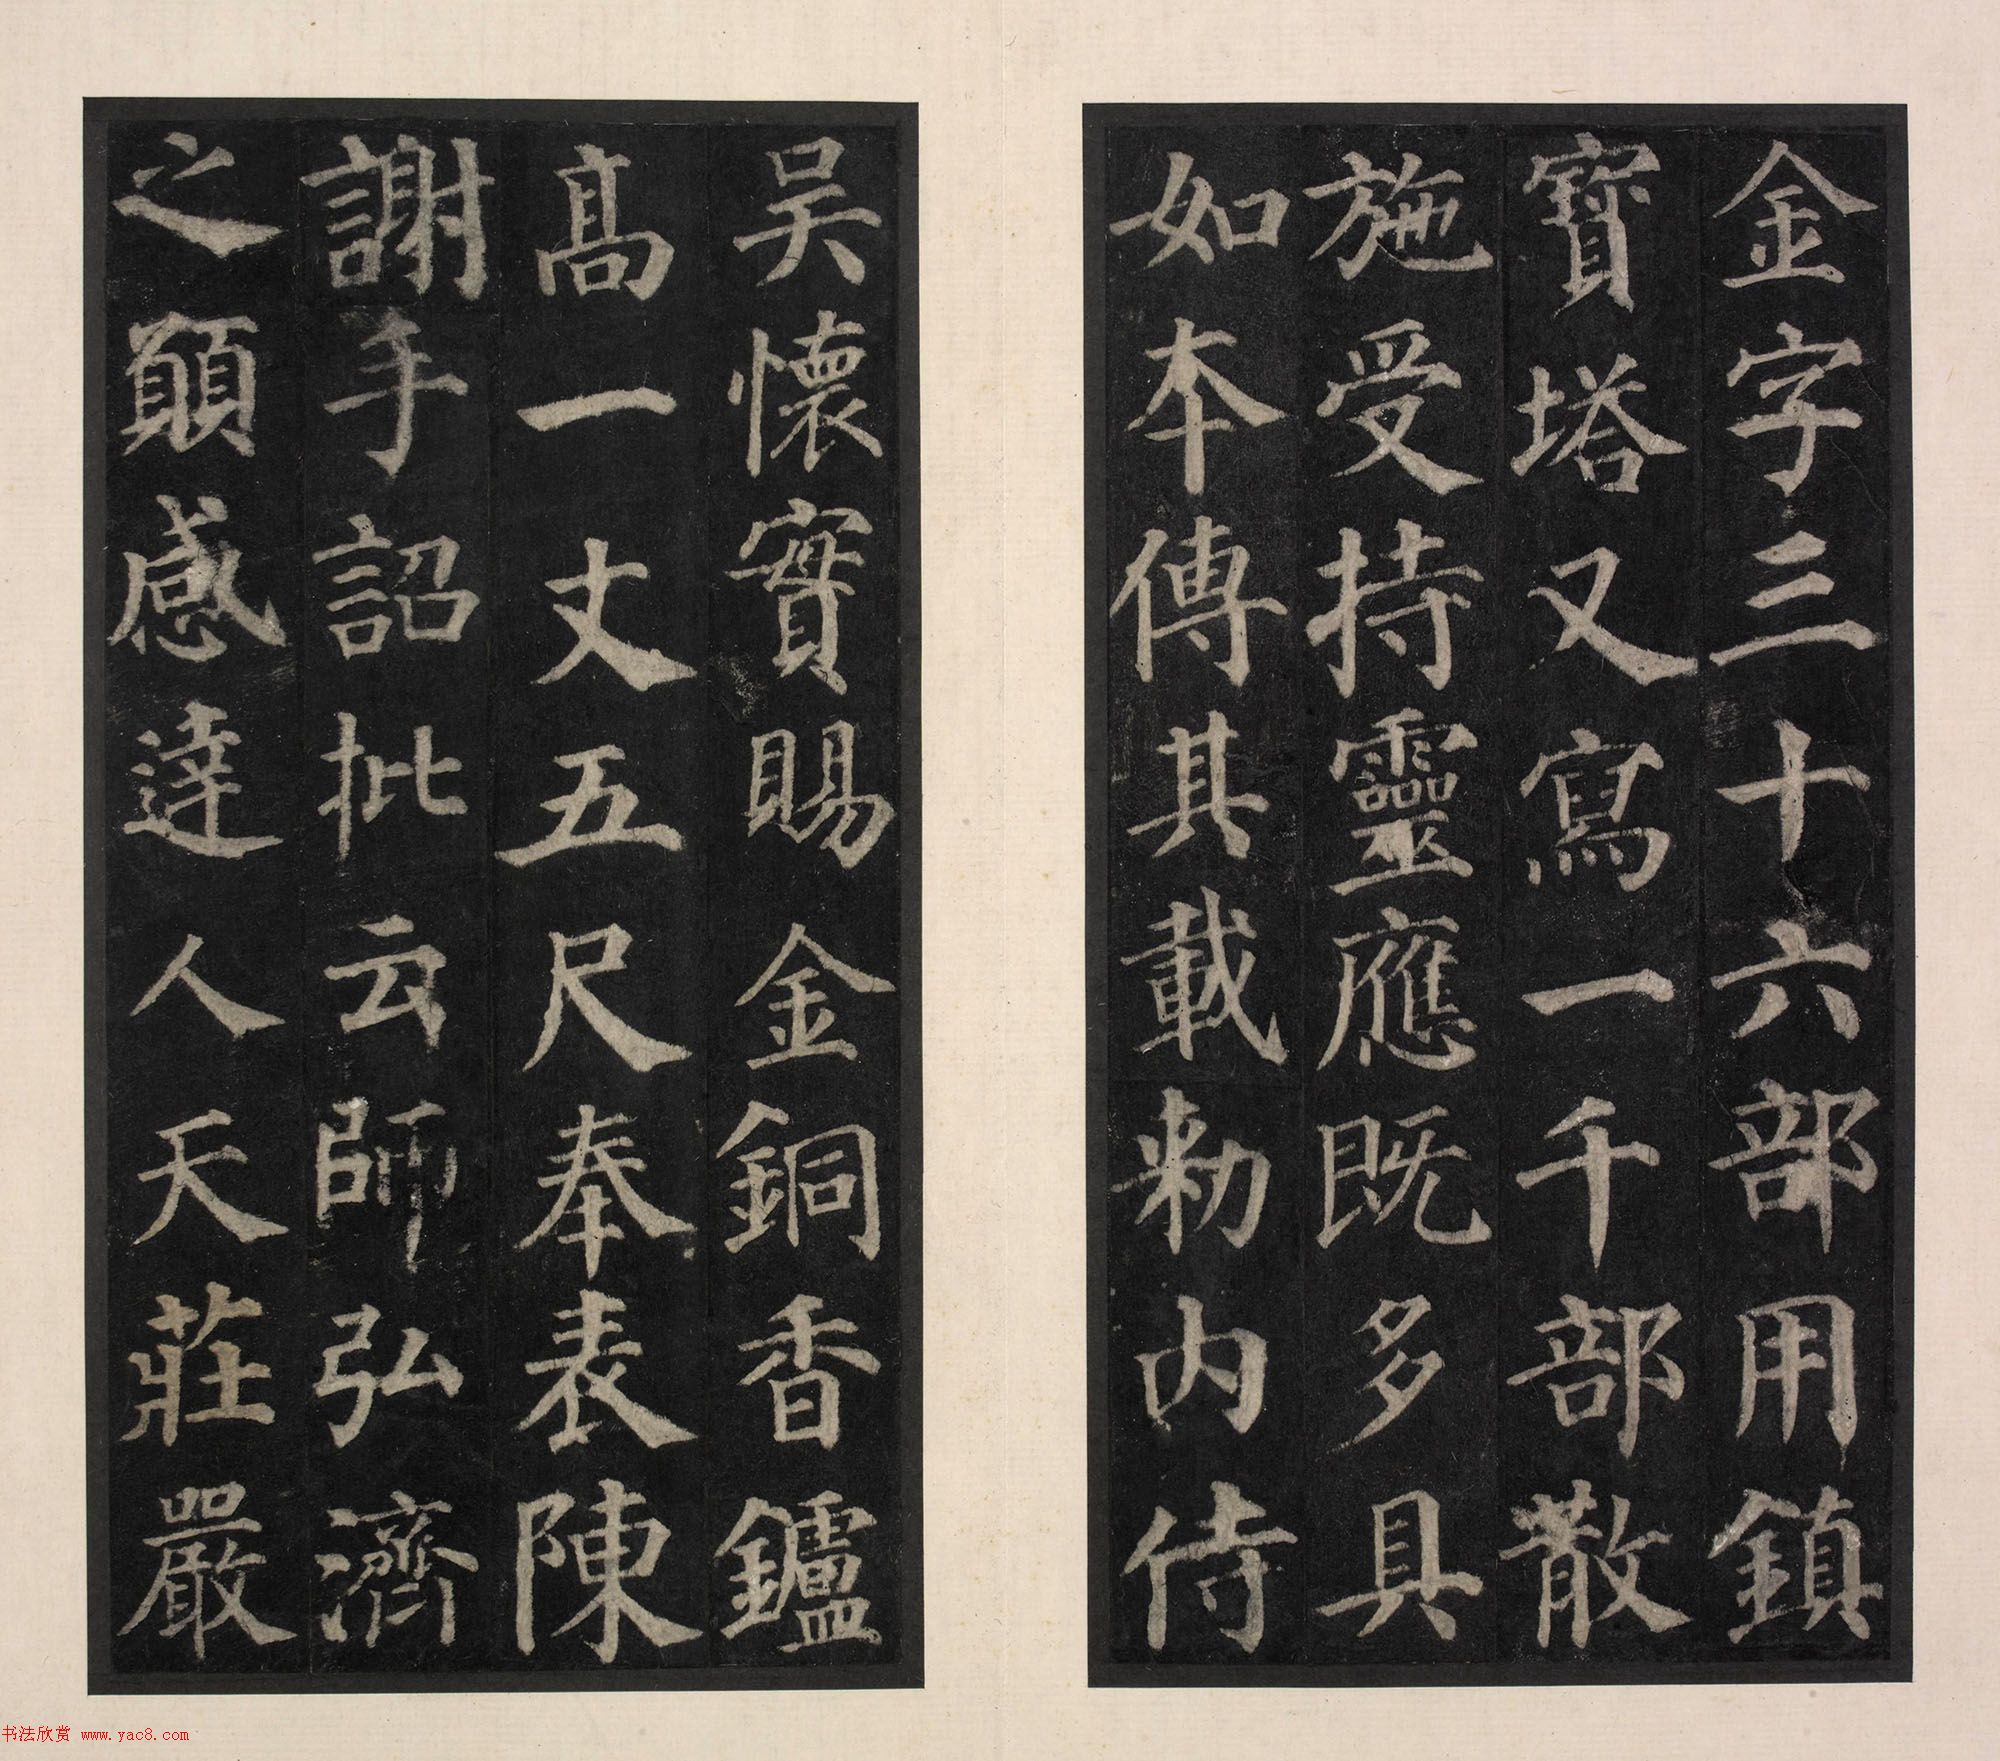 金字三十六部用鎮
寶塔又寫一千部散
施受持靈應既多具
如本傳其載勑內侍
吴懷實賜金銅香鑪
髙一丈五尺奉表陳
謝手詔批云師弘濟
之願感達人天莊嚴
书法欣赏 www.yac8.com